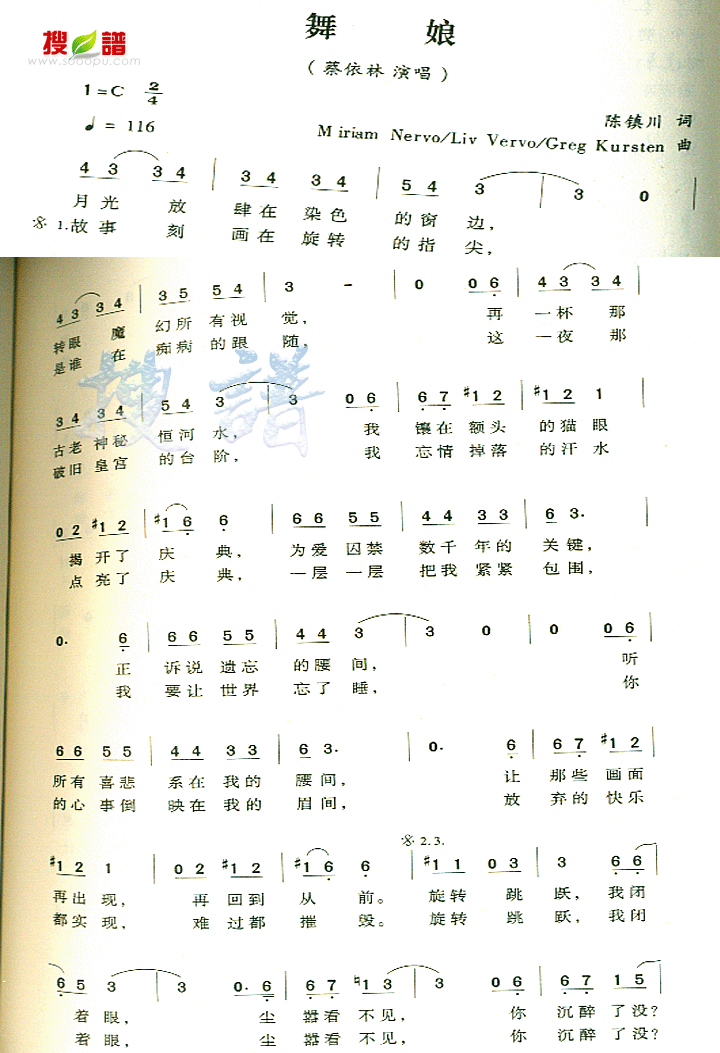 搜 譜
www.sooopu.com
舞 娘
(蔡依林 演唱)
1=C 2/4
♩ = 116
陈镇川 词
Miriam Nervo/Liv Vervo/Greg Kursten 曲
4 3 3 4 | 3 4 3 4 | 5 4 3 | 3 0 |
月光 放 肆在 染色 的窗 边,
1.故事 刻 画在 旋转 的指 尖,
4 3 3 4 | 3 5 5 4 | 3 - | 0 0 6 | 4 3 3 4 |
转眼 魔 幻所 有视 觉, 再 一杯 那
是谁 在 痴病 的跟 随, 这 一夜 那
搜譜
3 4 3 4 | 5 4 3 | 3 0 6 | 6 7 #1 2 | #1 2 1 |
古老 神秘 恒河 水, 我 镶在 额头 的猫 眼
破旧 皇宫 的台 阶, 我 忘情 掉落 的汗 水
0 2 #1 2 | #1 6 6 | 6 6 5 5 | 4 4 3 3 | 6 3· |
揭 开了 庆 典, 为爱 囚禁 数千 年的 关 键,
点 亮了 庆 典, 一层 一层 把我 紧紧 包 围,
0· 6 | 6 6 5 5 | 4 4 3 | 3 0 | 0 0 6 |
正 诉说 遗忘 的腰 间, 听
我 要让 世界 忘了 睡, 你
6 6 5 5 | 4 4 3 3 | 6 3· | 0· 6 | 6 7 #1 2 |
所有 喜悲 系在 我的 腰间, 让 那些 画面
的心 事倒 映在 我的 眉间, 放 弃的 快乐
2.3.
#1 2 1 | 0 2 #1 2 | #1 6 6 | #1 1 0 3 | 3 6 6 |
再出 现, 再 回到 从 前。 旋转 跳 跃, 我闭
都实 现, 难 过都 摧 毁。 旋转 跳 跃, 我闭
6 5 3 | 3 0· 6 | 6 7 #1 3 | 3 0 6 | 6 7 1 5 |
着 眼, 尘 嚣看 不见, 你 沉醉 了没?
着 眼, 尘 嚣看 不见, 你 沉醉 了没?